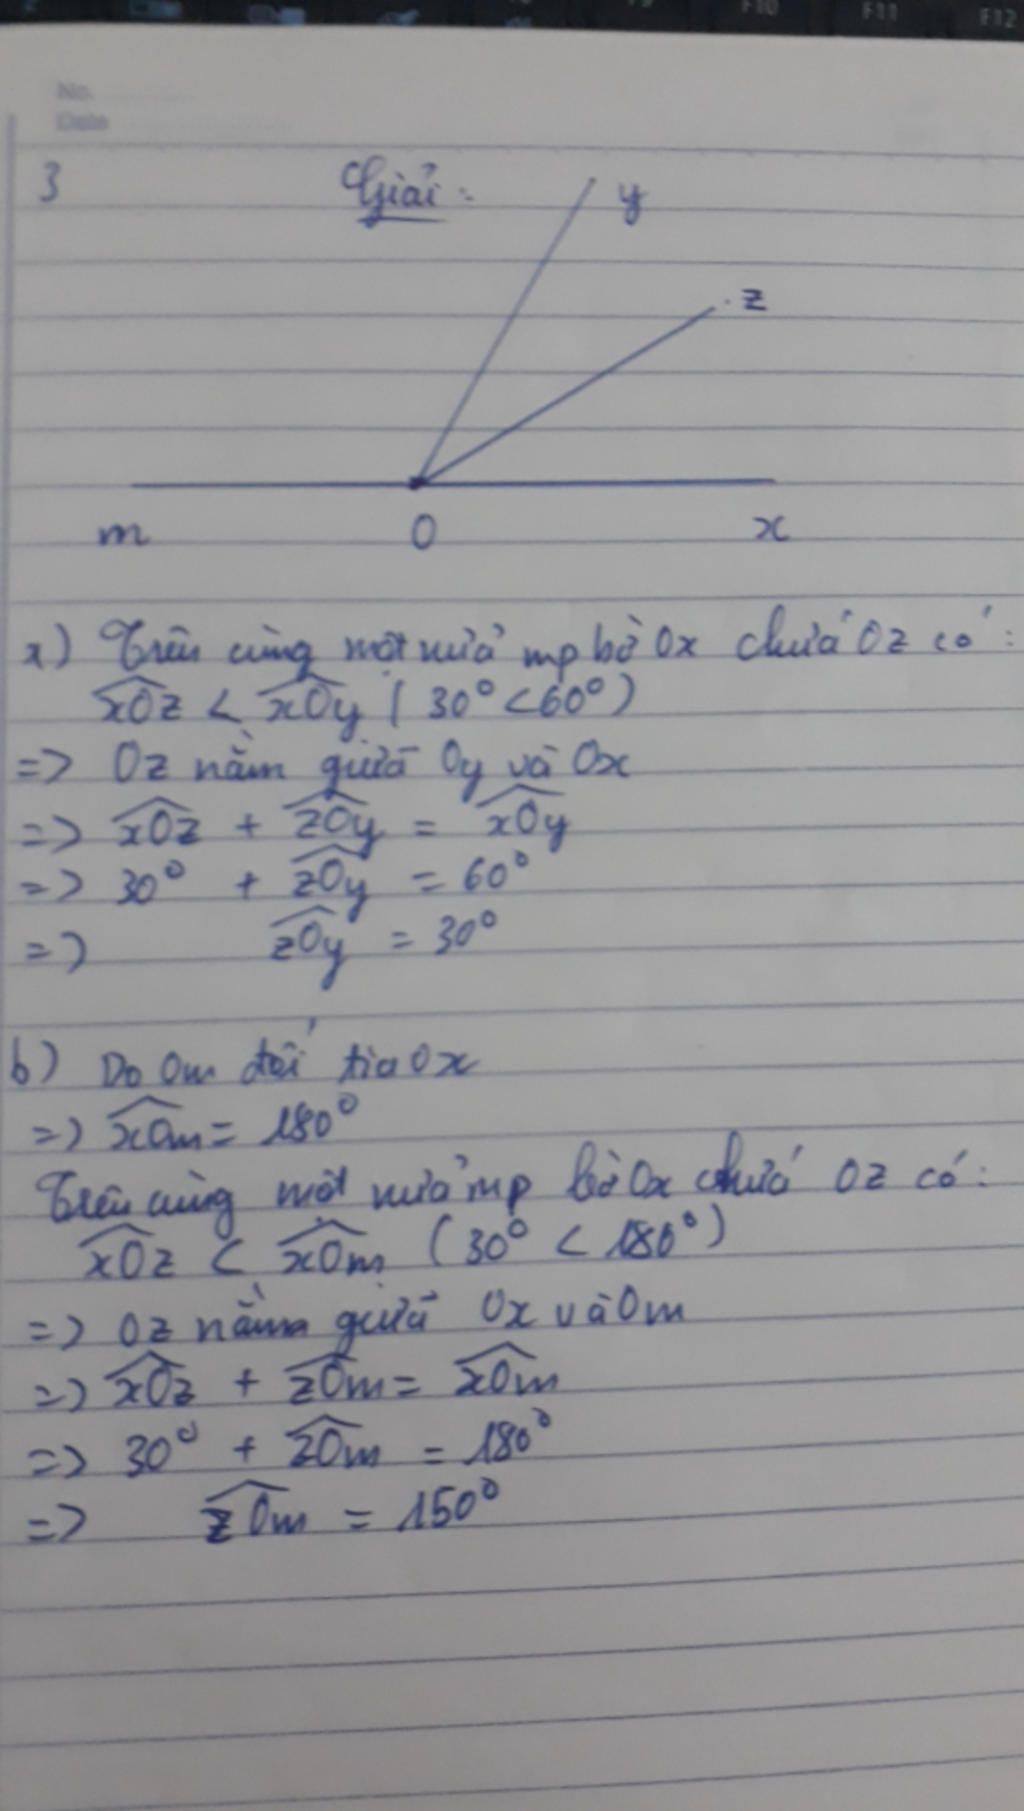 F10 F11 F12
No.
Date
3 Giải:
y
z
m O x
a) Trên cùng một nửa mp bờ Ox chứa Oz có:
xOz < xOy (30° < 60°)
=> Oz nằm giữa Oy và Ox
=> xOz + zOy = xOy
=> 30° + zOy = 60°
=> zOy = 30°
b) Do Om đối tia Ox
=> xOm = 180°
Trên cùng một nửa mp bờ Ox chứa Oz có:
xOz < xOm (30° < 180°)
=> Oz nằm giữa Ox và Om
=> xOz + zOm = xOm
=> 30° + zOm = 180°
=> zOm = 150°